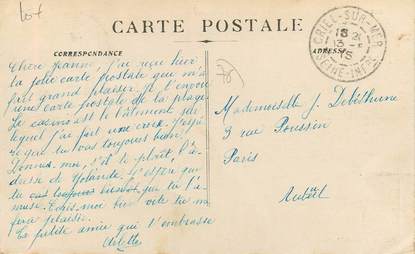 CARTE POSTALE
CORRESPONDANCE
Chère Jeanne, j'ai reçu hier
la jolie carte postale qui m'a
fait grand plaisir. Je t'envoie
une carte postale de la plage
Le casino est le bâtiment sur
lequel j'ai fait une croix. J'espère
que tu vas toujours bien.
Donnes-moi, s'il te plaît, l'a-
dresse de Yolande. J'espère que
tu vas toujours bien et que tu t'a-
muse. Ecris-moi bien vite tu me
fera plaisir.
Ta petite amie qui t'embrasse
Arlette
CRIEL-SUR-MER
18 21
13 -
15
SEINE-INFRE
ADRESSE
Mademoiselle J. Debéthune
3 rue Poussin
Paris
Auteuil